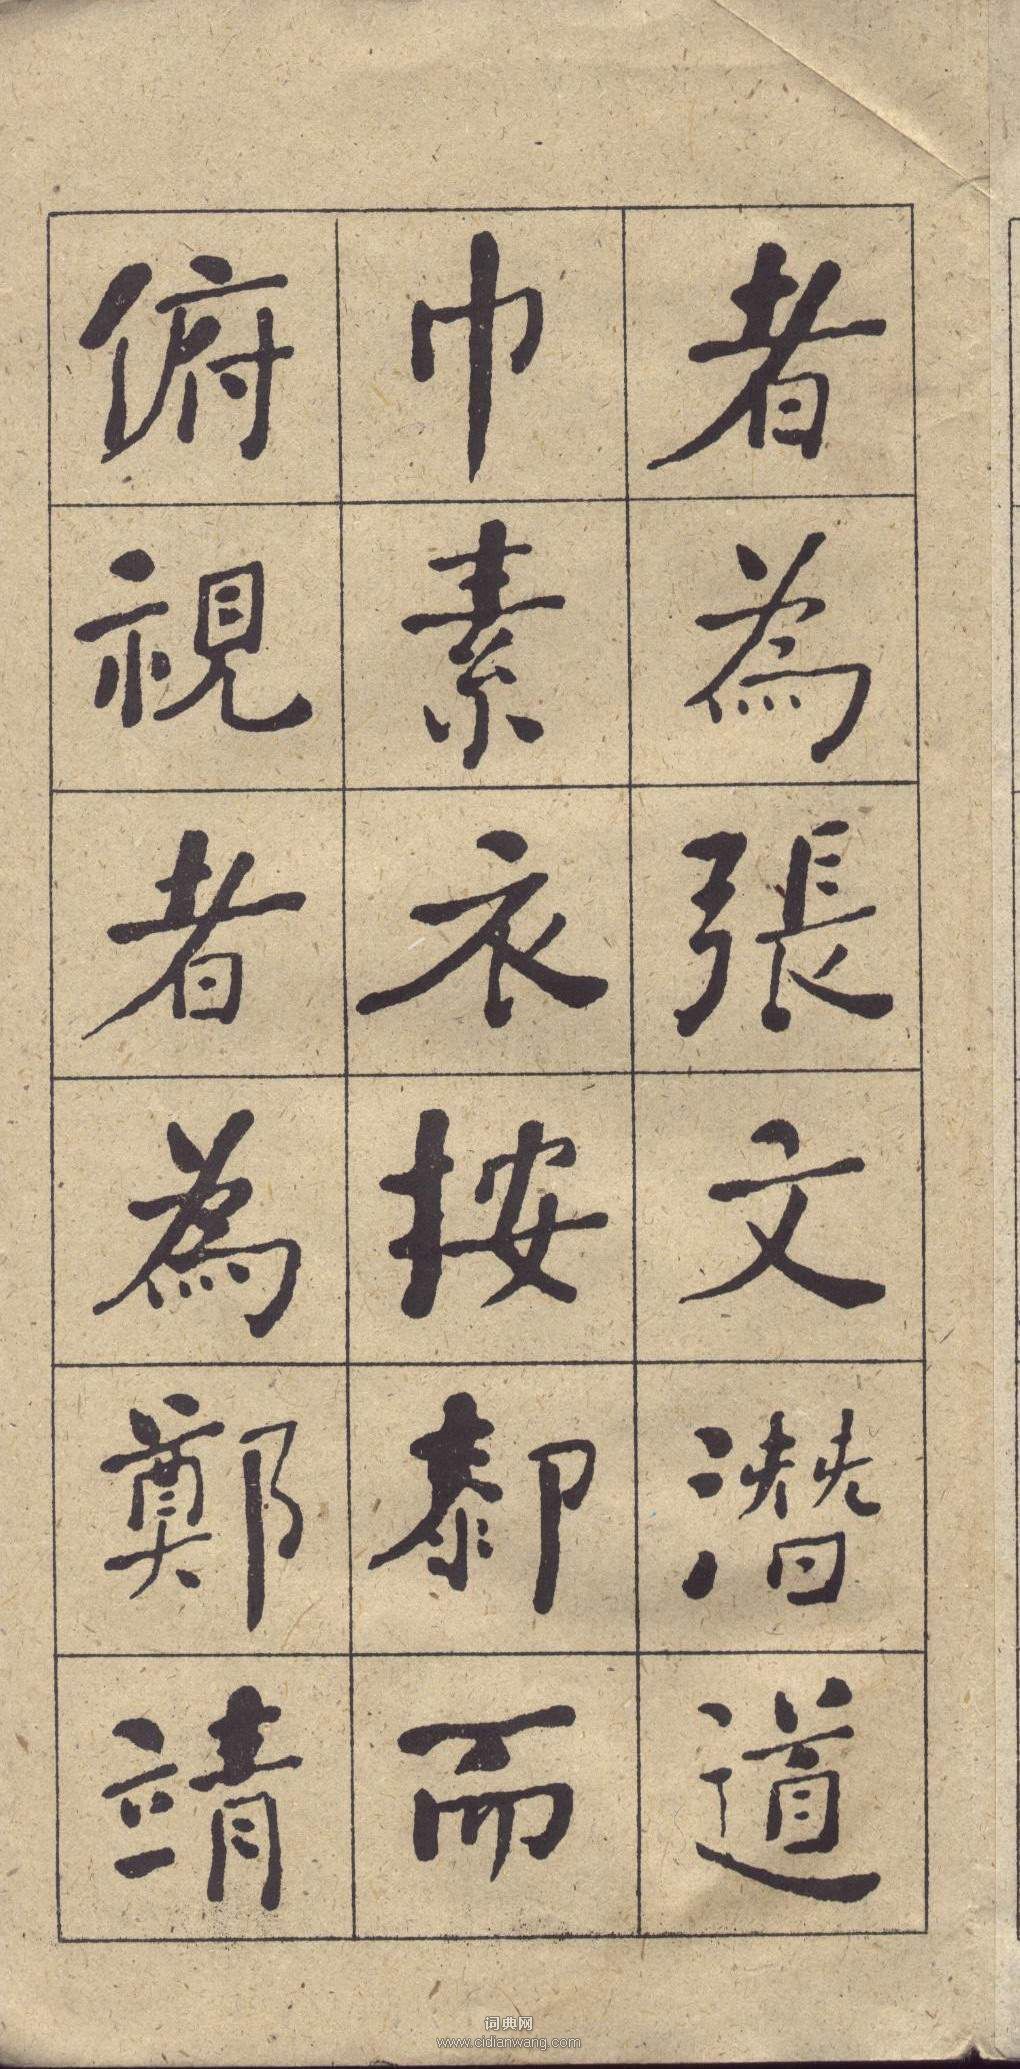 者為張文潛道
巾素衣按厀而
俯視者為鄭靖
词典网
www.cidianwang.com